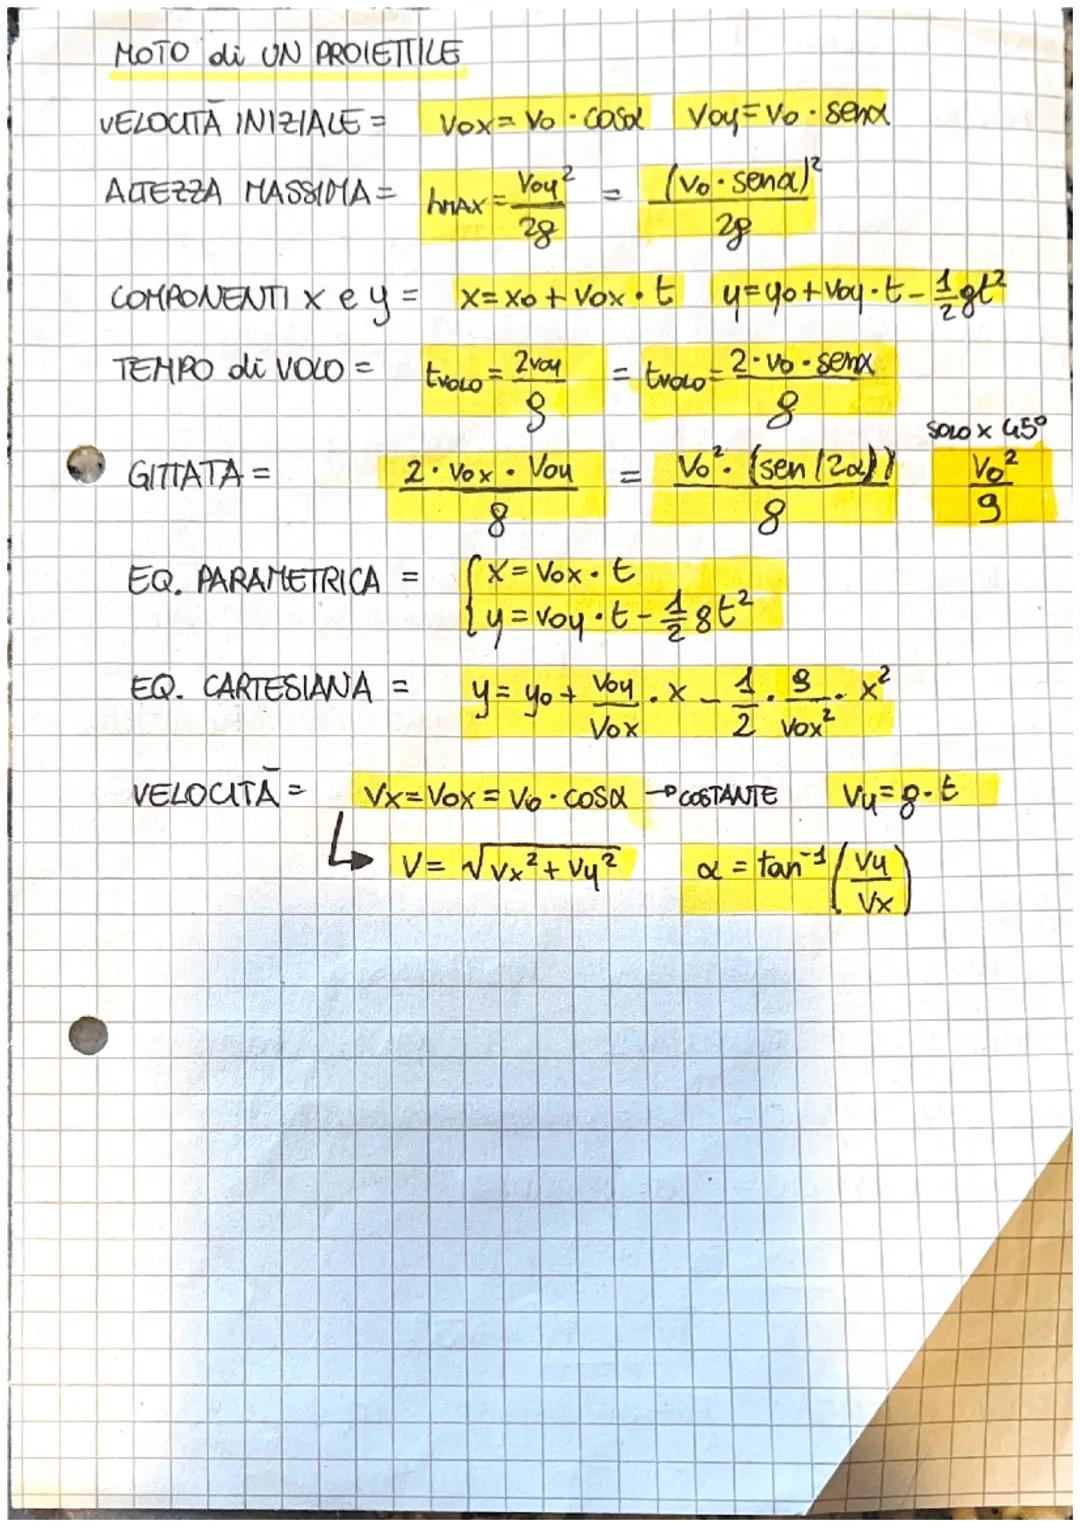 MOTO di UN PROIETTILE
VELOCITÀ INIZIALE = Vox = Vo · cosα Voy = Vo · senα
ALTEZZA MASSIMA = hMAX = Voy² / 2g = (Vo · senα)² / 2g
COMPONENTI x e y = x = xo + Vox · t y = yo + Voy · t - 1/2 gt²
TEMPO di VOLO = tvolo = 2voy / g = tvolo = 2 · vo · senα / g
SOLO x 45°
GITTATA = 2 · Vox · Voy / g = Vo² · (sen(2α)) / g Vo² / g
EQ. PARAMETRICA = { x = Vox · t
y = voy · t - 1/2 gt²
EQ. CARTESIANA = y = yo + Voy / Vox · x - 1/2 · g / Vox² · x²
VELOCITÀ = Vx = Vox = Vo · cosα → COSTANTE Vy = g · t
↳ V = √Vx² + Vy² α = tan⁻¹ (Vy / Vx)